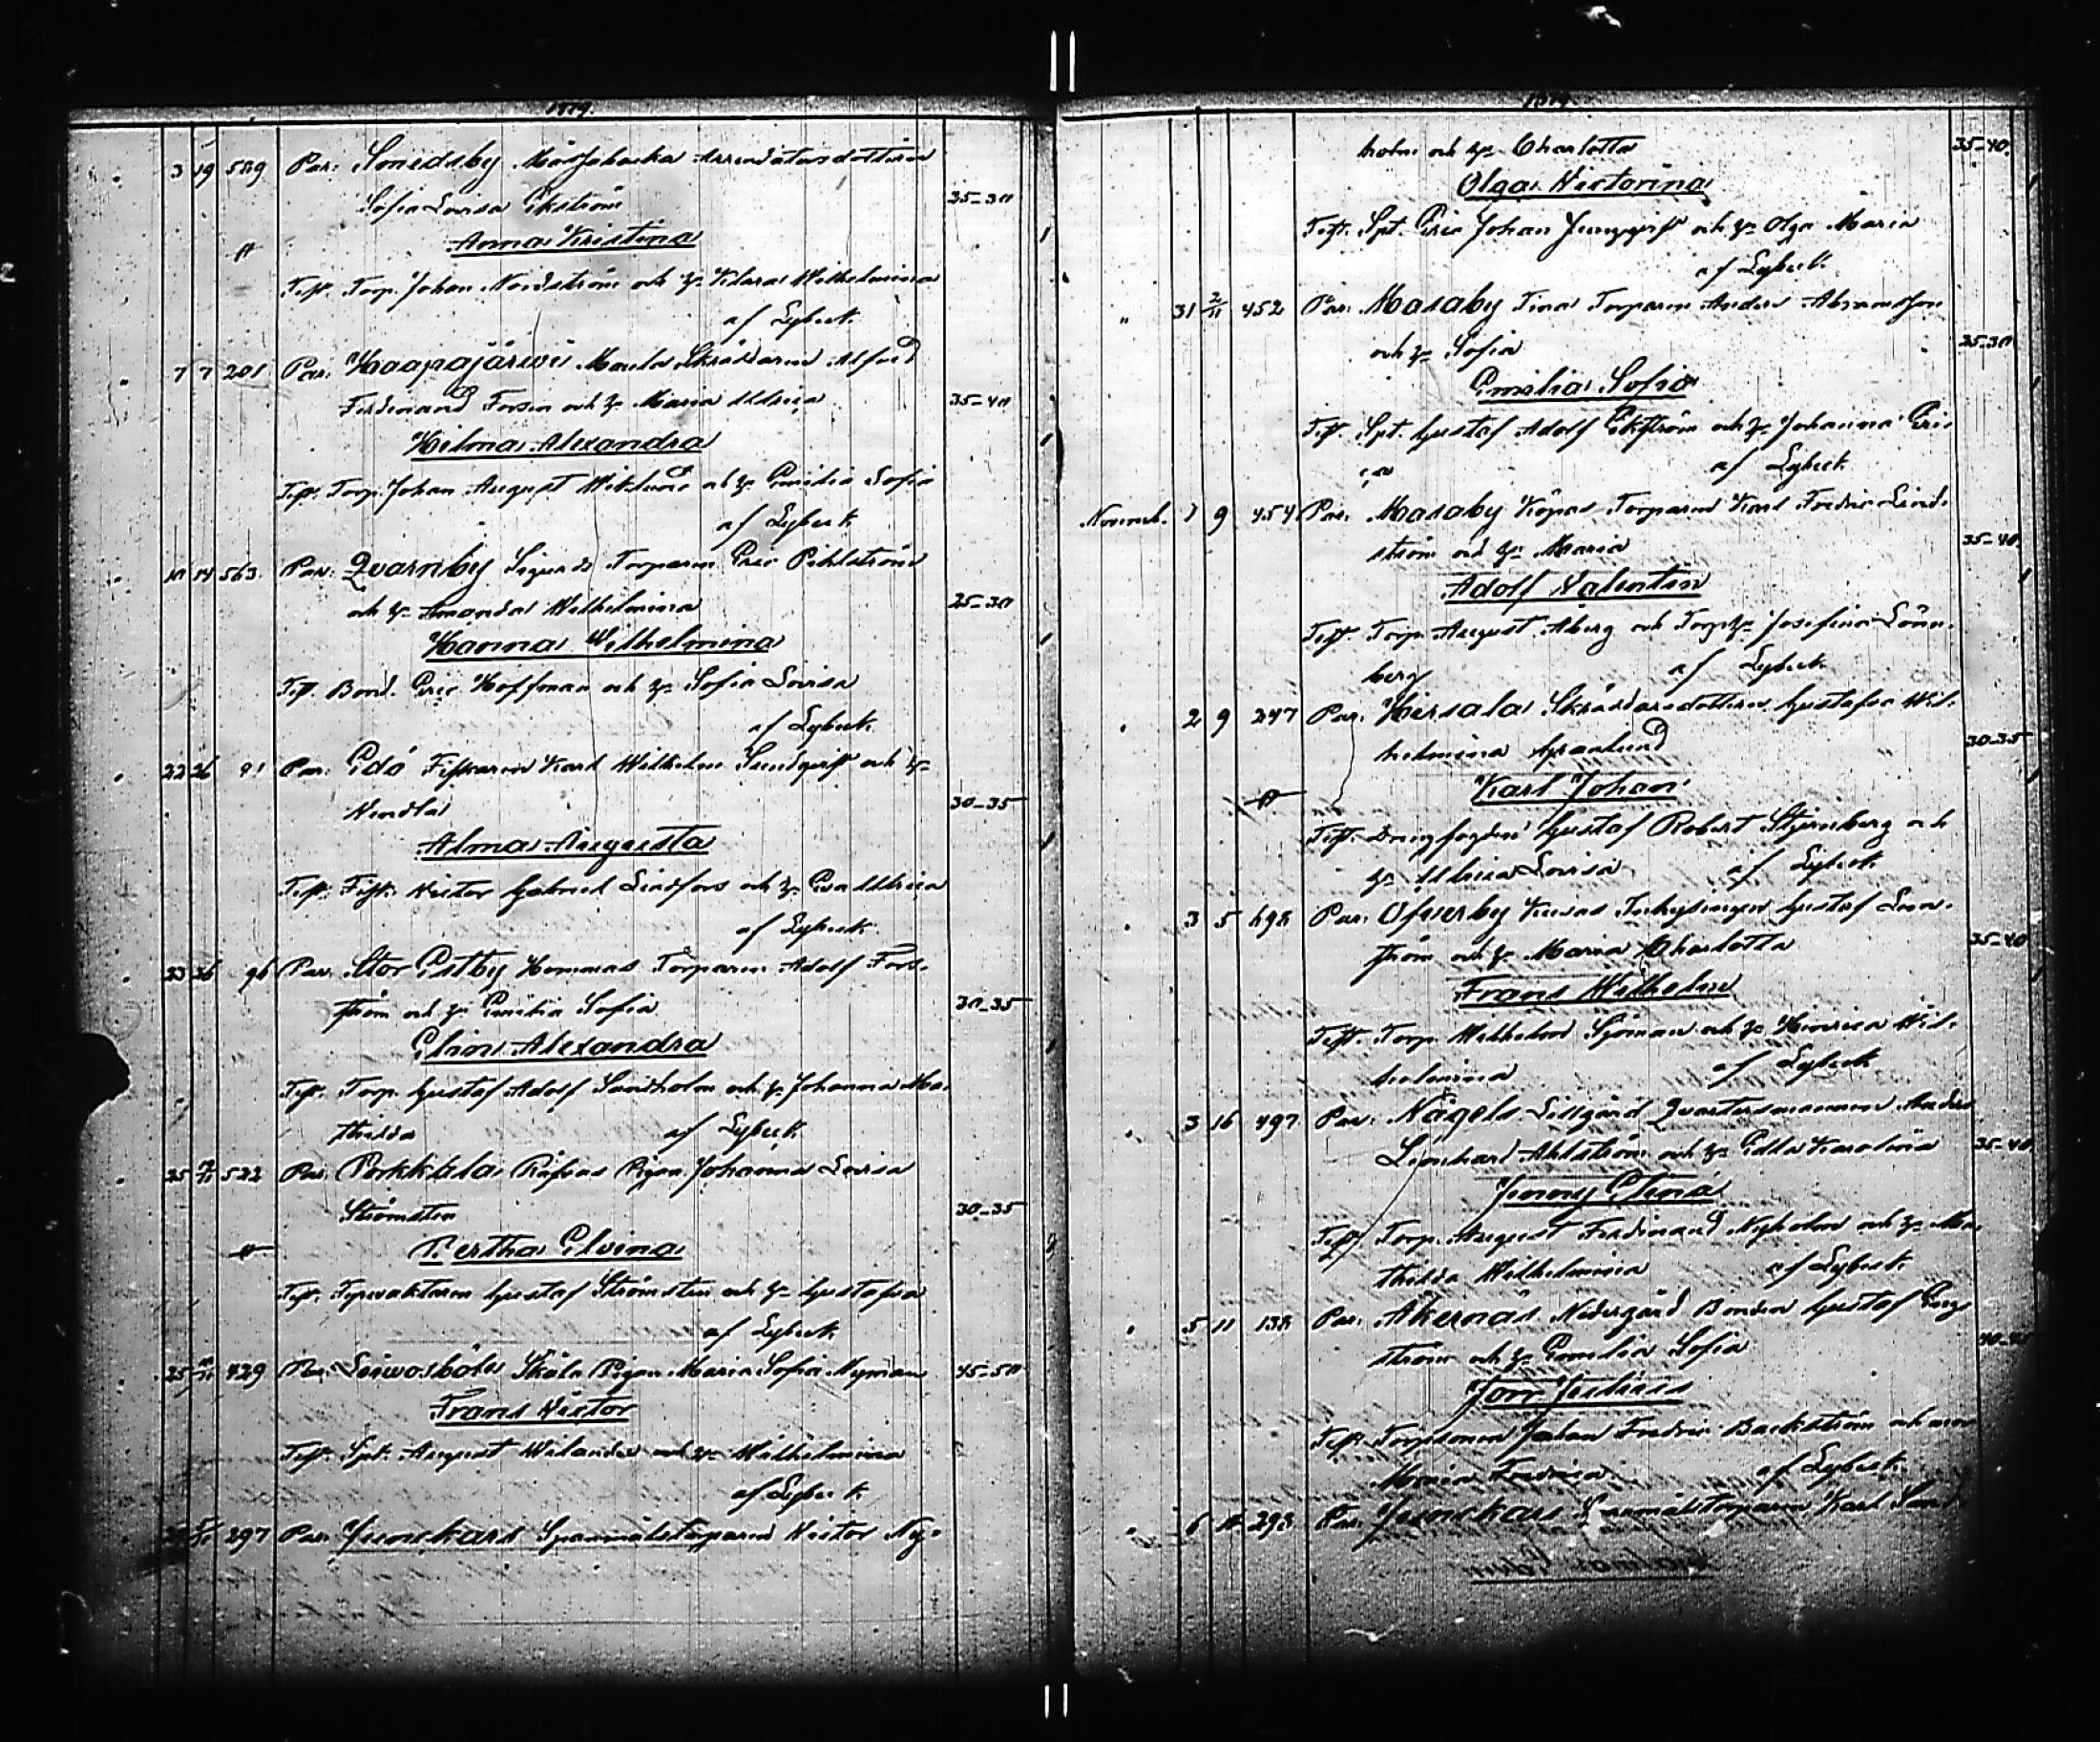 1879.
3 19 589 Par: Smedsby Mårs Arrendatorsdottern
Sofia Lovisa Ekström 25-30
Anna Kristina 1
Test. Torp. Johan Nordström och h. Klara Wilhelmina
af Lybeck.
7 7 201 Par. Haapajärwi Skräddaren Alfred
Ferdinand Forsen och h. Maria Ulrica 35-40
Hilma Alexandra 1
Test. Torp. Johan August Wiklund och h. Emilia Sofia
af Lybeck.
10 14 563 Par: Qvarnby Sigurds Torparen Eric Pihlström
och h. Amanda Wilhelmina 25-30
Hanna Wilhelmina 1
Test. Bond. Eric Hoffman och h. Sofia Lovisa
af Lybeck.
22 26 91 Par: Edö Fiskaren Karl Wilhelm Sundqvist och h.
Hendla 30-35
Alma Augusta 1
Test: Fisk: Victor Gabriel Lindfors och h. Eva Ulrica
af Lybeck.
23 26 96 Par. Stor Estby Hommas Torparen Adolf Fors-
ström och h. Emilia Sofia 30-35
Elin Alexandra 1
Test. Torp. Gustaf Adolf Sandholm och h. Johanna Ma-
thilda af Lybeck.
25 522 Par. Pokkala Räfvas Pigan Johanna Lovisa
Strömsten 30-35
Bertha Elvina
Test. Fyrvaktaren Gustaf Strömsten och h. Gustafva
af Lybeck.
25 429 Par. Skåla Pigan Maria Sofia Nyman 45-50
Frans Victor
Test. Spt. August Welander och h. Wilhelmina
af Lybeck.
297 Par. Junskars Spannmålstorparen Victor Ny-
1879.
holm och h. Charlotta 35-40.
Olga Victorina
Test. Spt. Eric Johan Ljungqvist och h. Olga Maria
af Lybeck.
" 31 2/11 452 Par: Masaby Torparen Anders Abramsson
och h. Sofia 25-30
Emilia Sofia
Test. Spt. Gustaf Adolf Ekström och h. Johanna Eri-
ca af Lybeck.
Novemb. 1 9 454 Par. Masaby Köpas Torparen Karl Fredric Lind-
ström och h. Maria 35-40.
Adolf Valentin 1
Test. Torp. August Åberg och Torp.h. Josefina Lönn-
berg af Lybeck.
2 9 247 Par: Hirsala Skräddaredottern Gustafva Wil-
helmina Granlund 30-35
Karl Johan
Test. Drengfogden Gustaf Robert Stjernberg och
h. Ulrica Lovisa af Lybeck.
3 5 698 Par: Ofverby Knuas Inhysingen Gustaf Lin-
ström och h. Maria Charlotta 35-40
Frans Wilhelm
Test. Torp. Wilhelm Sjöman och h. Henrica Wil-
helmina af Lybeck
3 16 497 Par: Nägels Lillgård Qvartersmannen Anders
Leonhard Ahlström och h. Edla Karolina 35-40
Jenny Elina
Test. Torp. August Ferdinand Nyholm och h. Ma-
thilda Wilhelmina af Lybeck.
5 11 138 Par: Åkernäs Nedergård Bonden Gustaf Eng-
ström och h. Emilia Sofia
Joni Julius
Test. Torp.sonen Johan Fredric Backström och mor
Maria Fredrica af Lybeck.
6 298 Par. Junskars Spannmålstorparen Karl